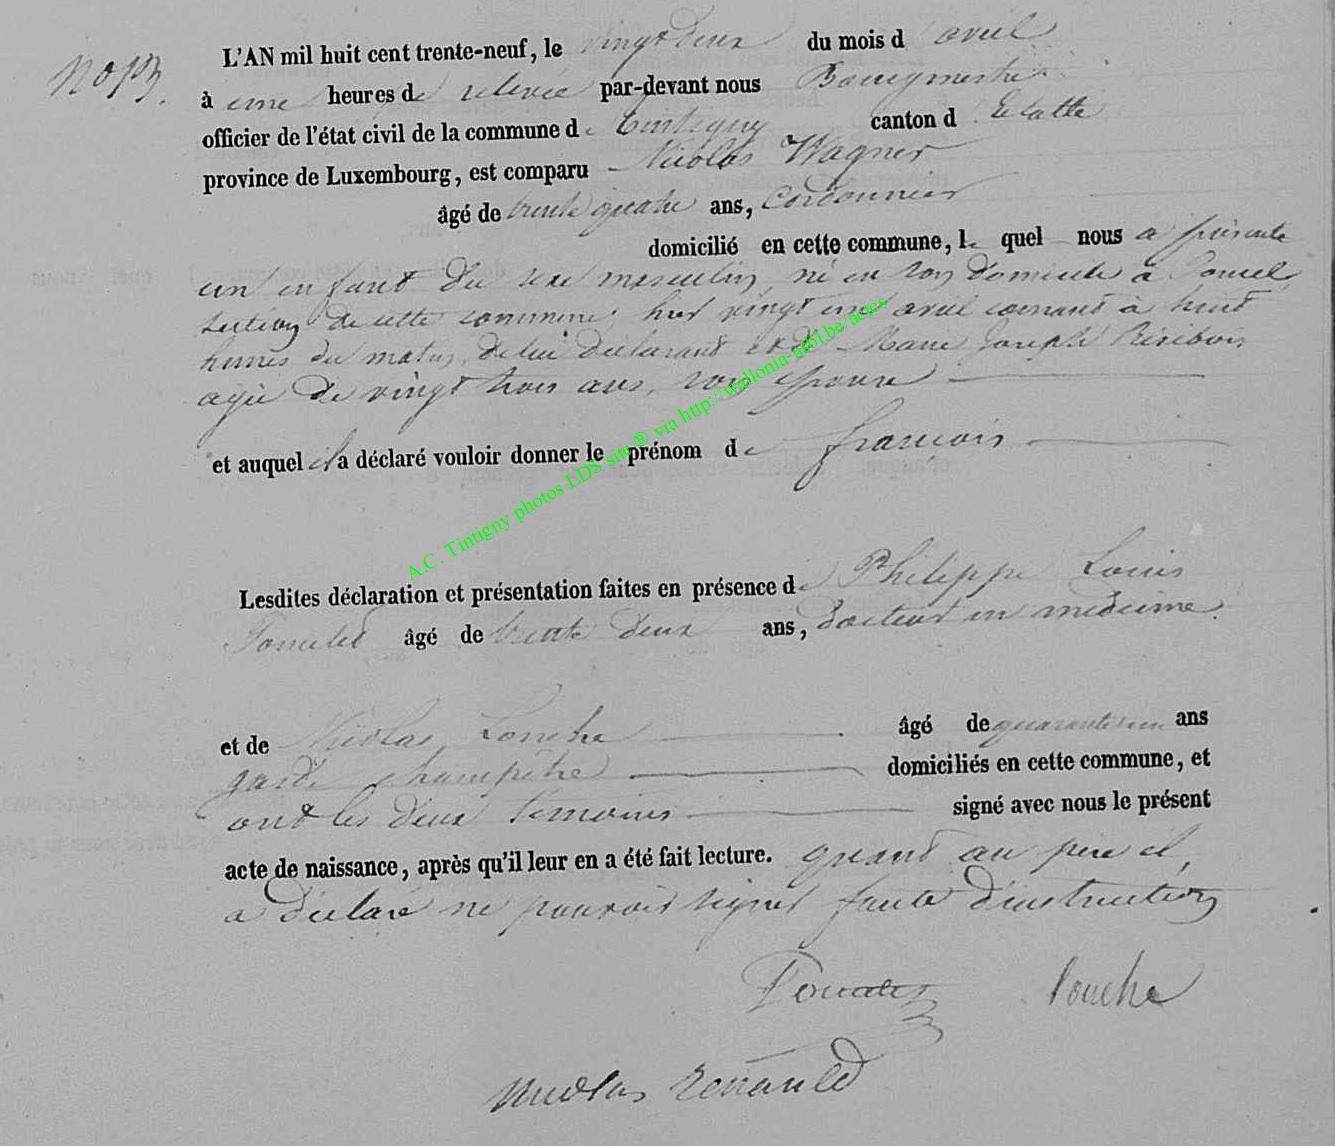 L'AN mil huit cent trente-neuf, le vingt deux du mois d avril
à une heures de relevée par-devant nous Bourgmestre
officier de l'état civil de la commune de Tintigny canton d Etalle
province de Luxembourg, est comparu Nicolas Wagner
âgé de trente quatre ans, cordonnier
domicilié en cette commune, le quel nous a présenté
un enfant du sexe masculin, né en son domicile à
section de cette commune hier vingt un avril courant à huit
heures du matin, de lui déclarant et de Marie Joseph
agée de vingt trois ans, son épouse
et auquel il a déclaré vouloir donner le prénom de françois
Lesdites déclaration et présentation faites en présence de Philippe Louis
âgé de trente deux ans, docteur en médecine
et de Nicolas Louche âgé de quarante un ans
garde champêtre domiciliés en cette commune, et
ont les deux témoins signé avec nous le présent
acte de naissance, après qu'il leur en a été fait lecture. quant au père il,
a déclaré ne pouvoir signer faute d'instruction
Louche
Nicolas Renauld
A.C. Tintigny photos LDS site ® via http://wallonia-asbl.be/actes